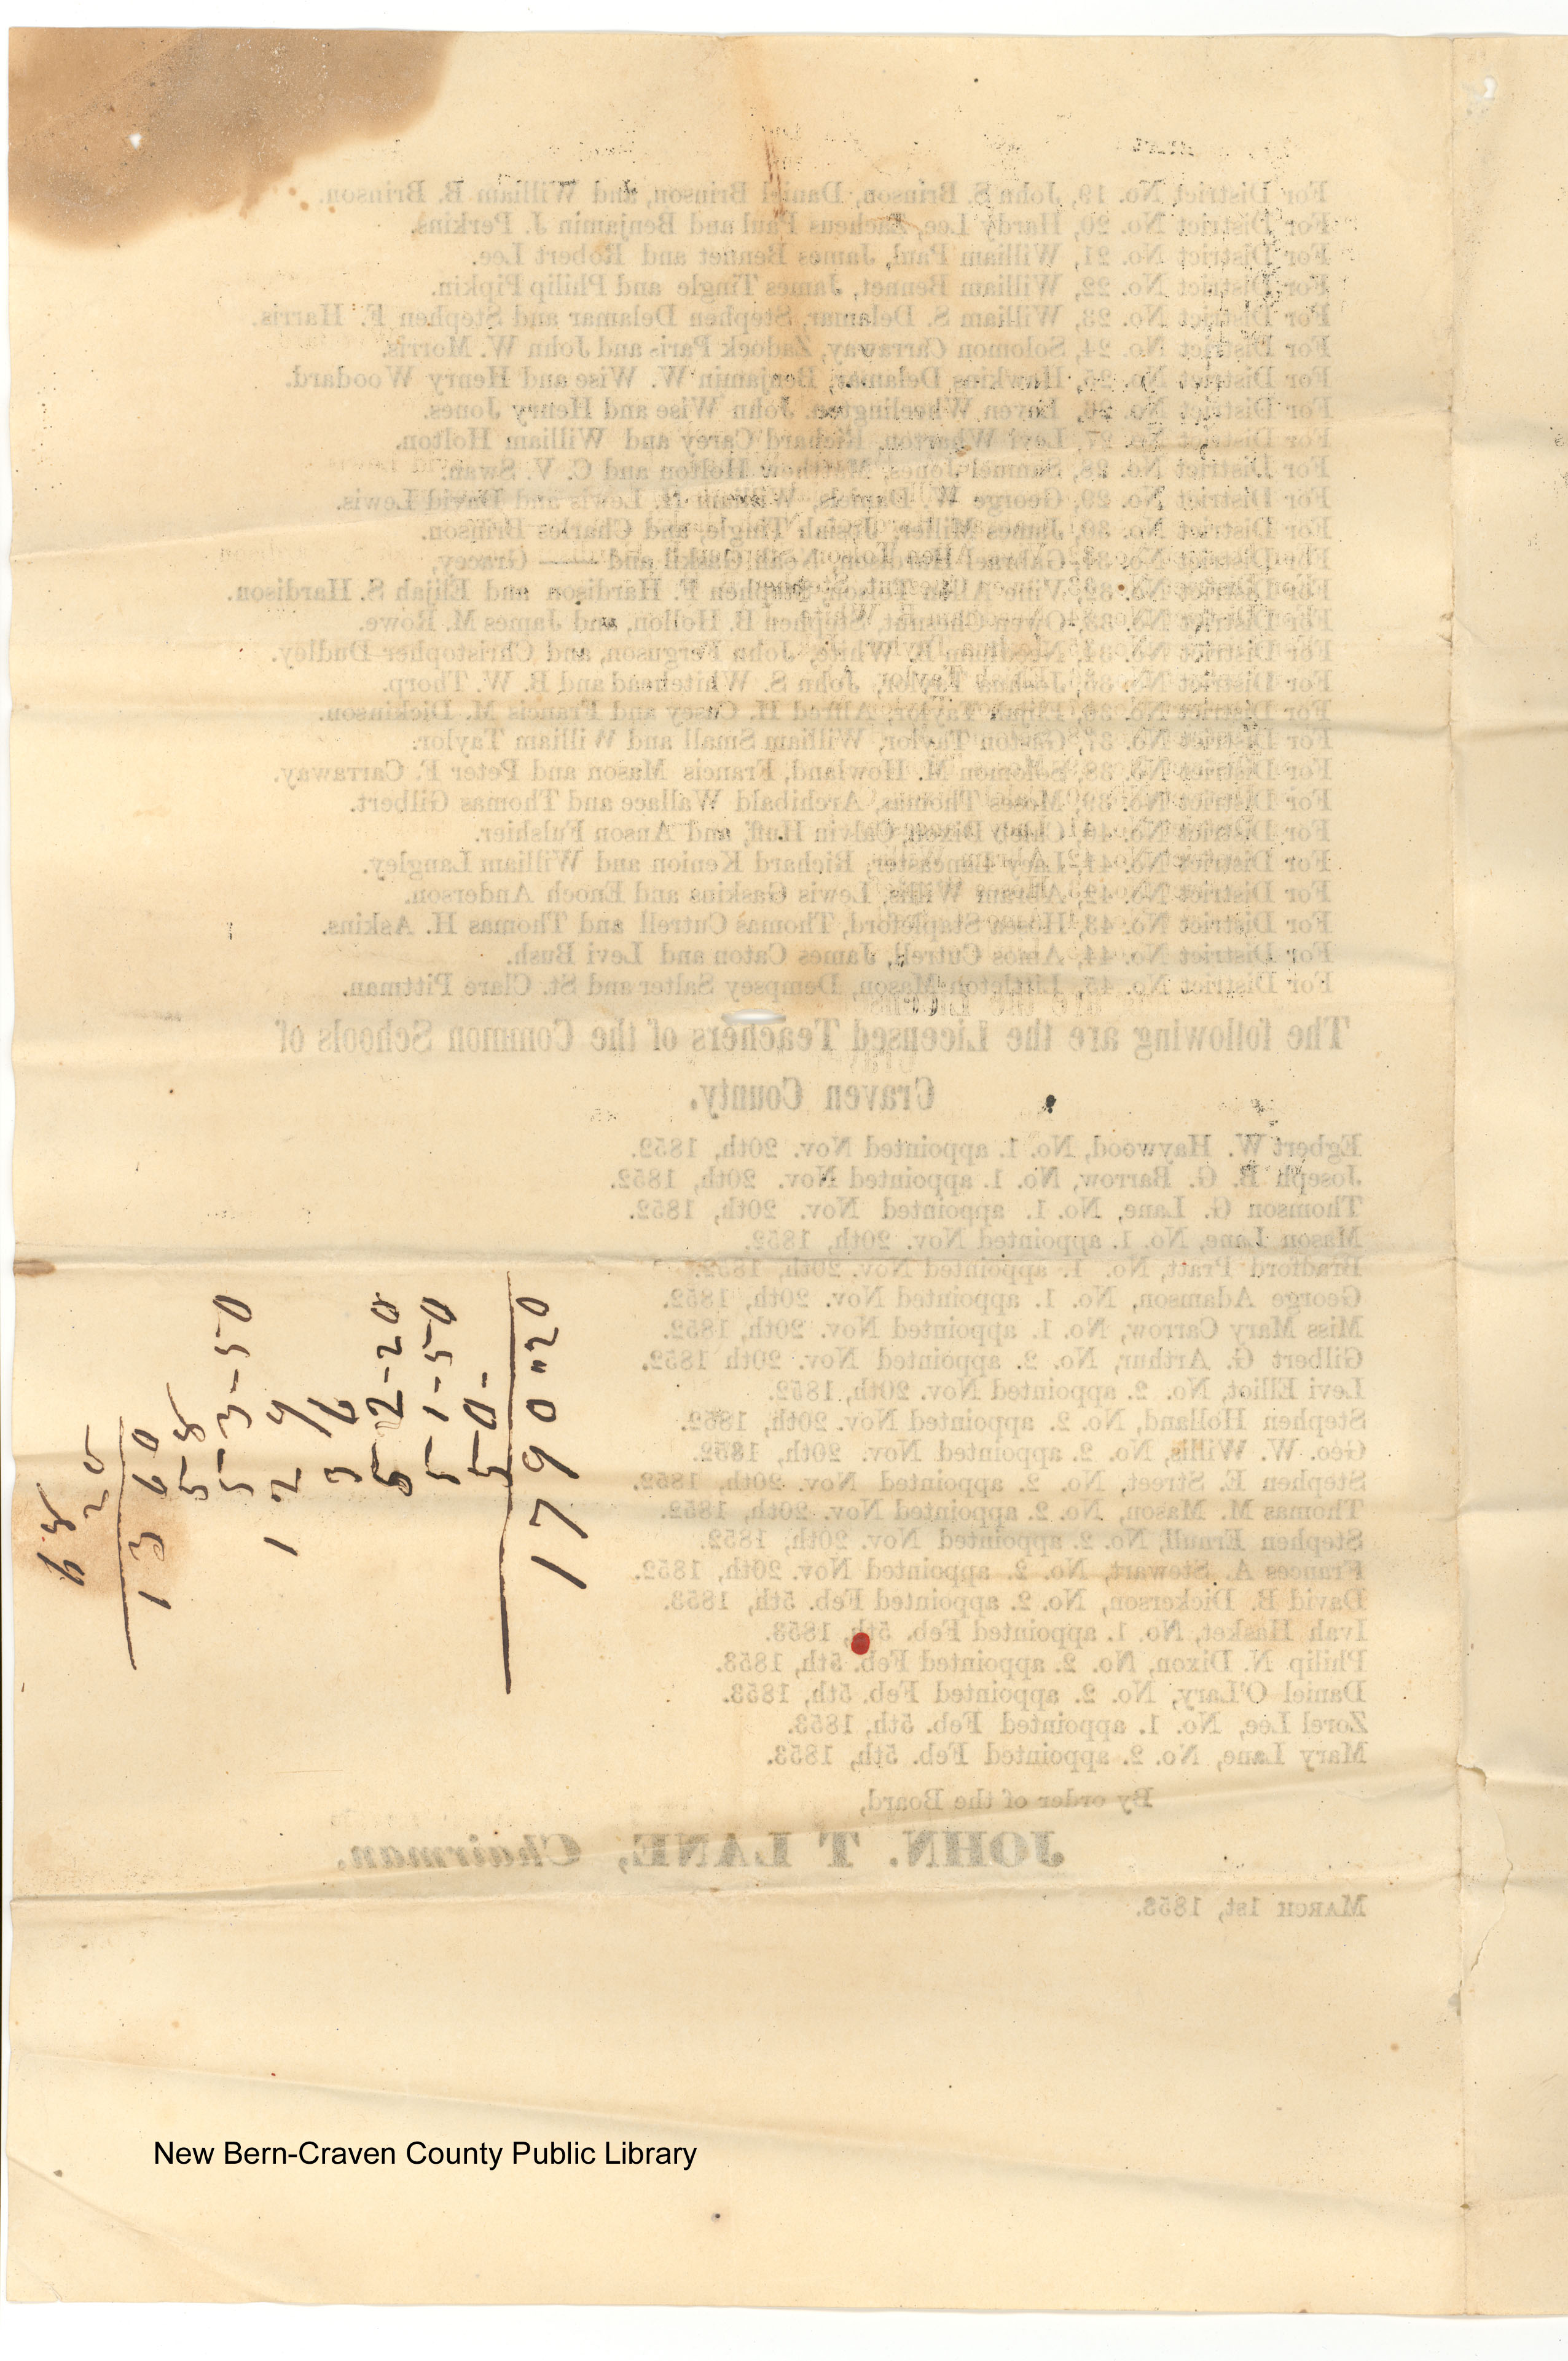 For District No. 19, John S. Brinson, Daniel Brinson, and William B. Brinson.
For District No. 20, Hardy Lee, Zacheus Paul and Benjamin J. Perkins.
For District No. 21, William Paul, James Bennet and Robert Lee.
For District No. 22, William Bennet, James Tingle and Philip Pipkin.
For District No. 23, William S. Delamar, Stephen Delamar and Stephen F. Harris.
For District No. 24, Solomon Carraway, Zadock Paris and John W. Morris.
For District No. 25, Hawkins Delamar, Benjamin W. Wise and Henry Woodard.
For District No. 26, Loven Wheelington, John Wise and Henry Jones.
For District No. 27, Levi Wharton, Richard Carey and William Holton.
For District No. 28, Samuel Jones, Matthew Holton and C. V. Swan.
For District No. 29, George W. Daniels, William H. Lewis and David Lewis.
For District No. 30, James Miller, Josiah Tingle, and Charles Brinson.
For District No. 31, Gabriel Hardison, Noah Gaskil and —— Gracey,
For District No. 32, Allen Tolson, Stephen F. Hardison and Elijah S. Hardison.
For District No. 33, Owen Stephen B. Hollon, and James M. Rowe.
For District No. 34, Needham B. White, John Ferguson, and Christopher Dudley.
For District No. 35, Taylor, John S. Whitehead and B. W. Thorp.
For District No. 36, Elijah Taylor, Alfred H. Casey and Francis M. Dickinson.
For District No. 37, Gaston Taylor, William Small and William Taylor.
For District No. 38, Solomon M. Howland, Francis Mason and Peter F. Carraway.
For District No. 39, Moses Thomas, Archibald Wallace and Thomas Gilbert.
For District No. 40, Dixon, Calvin Huff, and Anson Fulshier.
For District No. 41, Lacy Lancaster, Richard Kenion and William Langley.
For District No. 42, Abram Willis, Lewis Gaskins and Enoch Anderson.
For District No. 43, Hosea Stapleford, Thomas Cutrell and Thomas H. Askins.
For District No. 44, Amos Cutrell, James Caton and Levi Bush.
For District No. 45, Littleton Mason, Dempsey Salter and St. Clare Pittman.
The following are the Licensed Teachers of the Common Schools of
Craven County.
Egbert W. Haywood, No. 1. appointed Nov. 20th, 1852.
Joseph B. G. Barrow, No. 1. appointed Nov. 20th, 1852.
Thomson G. Lane, No. 1. appointed Nov. 20th, 1852.
Mason Lane, No. 1. appointed Nov. 20th, 1852.
Bradford Pratt, No. 1. appointed Nov. 20th, 1852.
George Adamson, No. 1. appointed Nov. 20th, 1852.
Miss Mary Carrow, No. 1. appointed Nov. 20th, 1852.
Gilbert G. Arthur, No. 2. appointed Nov. 20th 1852.
Levi Elliot, No. 2. appointed Nov. 20th, 1852.
Stephen Holland, No. 2. appointed Nov. 20th, 1852.
Geo. W. Willis, No. 2. appointed Nov. 20th, 1852.
Stephen E. Street, No. 2. appointed Nov. 20th, 1852.
Thomas M. Mason, No. 2. appointed Nov. 20th, 1852.
Stephen Ernull, No. 2. appointed Nov. 20th, 1852.
Frances A. Stewart, No. 2. appointed Nov. 20th, 1852.
David B. Dickerson, No. 2. appointed Feb. 5th, 1853.
Ivah Hasket, No. 1. appointed Feb. 5th, 1853.
Philip N. Dixon, No. 2. appointed Feb. 5th, 1853.
Daniel O'Lary, No. 2. appointed Feb. 5th, 1853.
Zorel Lee, No. 1. appointed Feb. 5th, 1853.
Mary Lane, No. 2. appointed Feb. 5th, 1853.
By order of the Board,
JOHN. T LANE, Chairman.
MARCH 1st, 1853.
68
20
1360
58
53-50
129
36
52-20
51-50
50-
1790"20
New Bern-Craven County Public Library